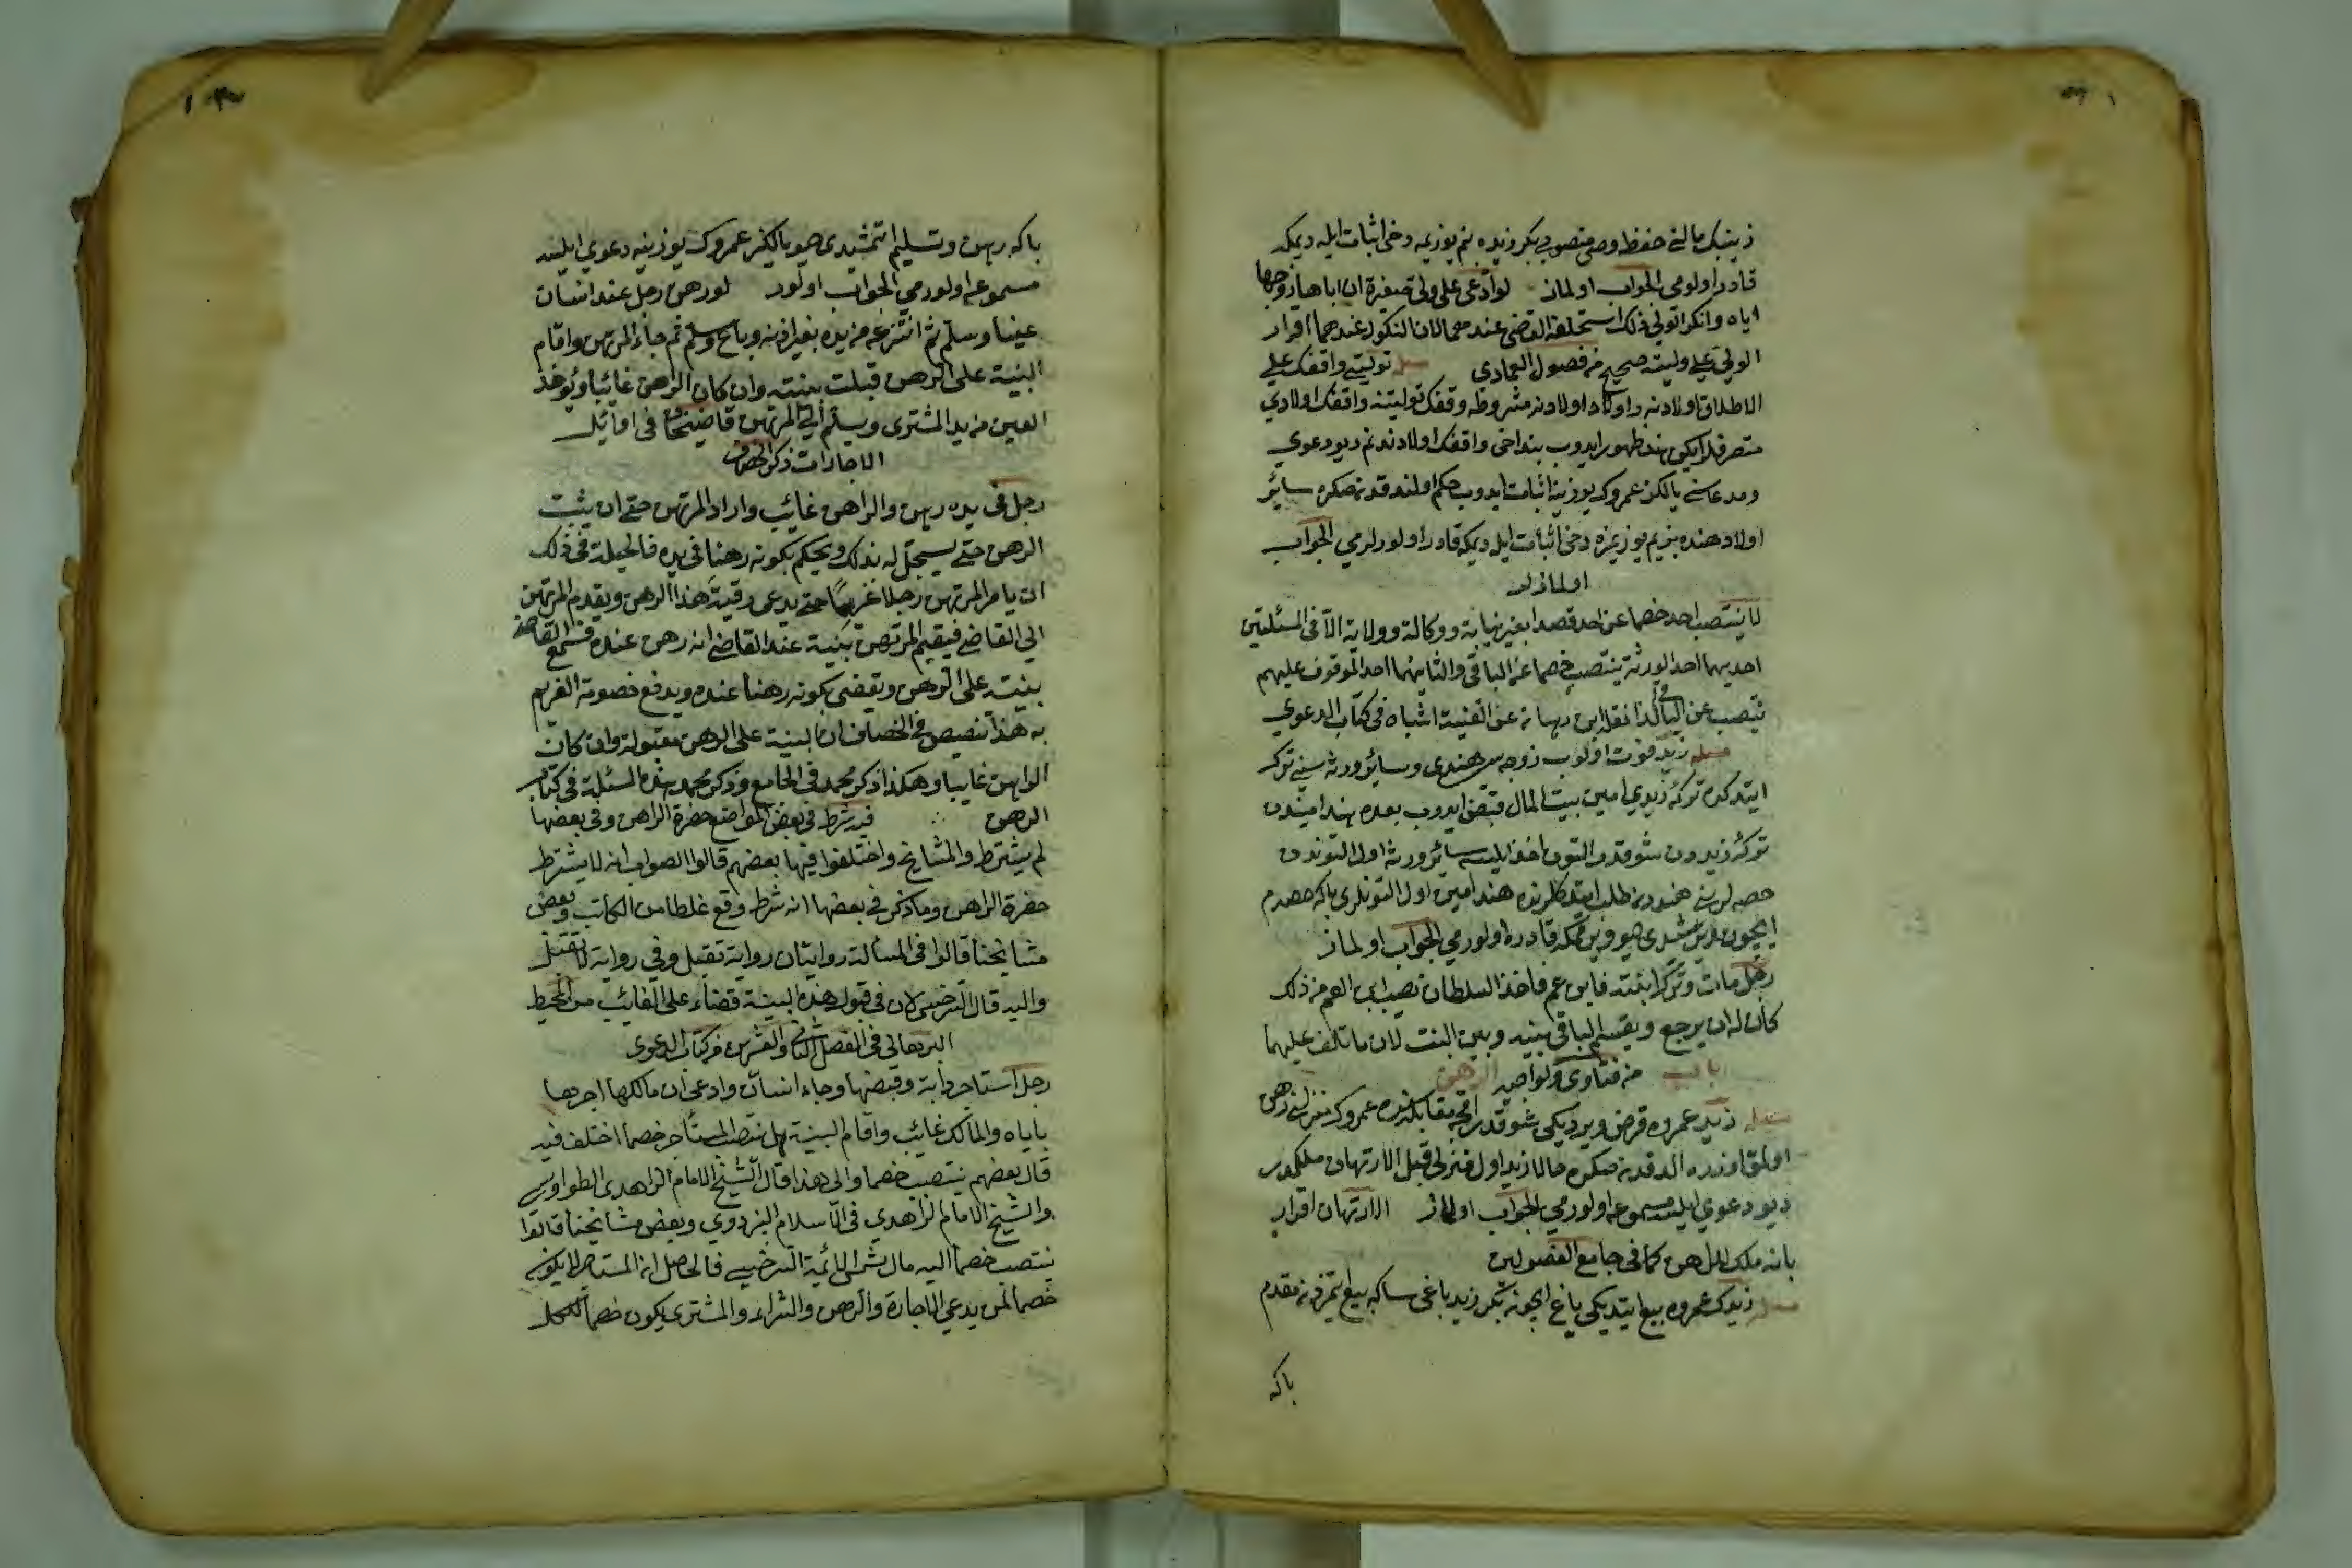 زينبك مالنى حفظه وصى منصوب بكر زيده بنم يوزيمه دخى اثبات ايله ديمكه
قادر اولورمى الجواب اولماز لو ادعى على ولى صغيرة ان اباها زوجها
اياه وانكر الولى ذلك استحلفه القاضى عندهما لان النكول عندهما اقرار
الولى على وليته صحيح من فصول العمادى مسئله توليتى واقفك على
الاطلاق اولادنه واولاد اولادنه مشروطه وقفك توليتنه واقفك اولادى
متصرفلر ايكن هند ظهور ايدوب بنداخى واقفك اولادندنم ديو دعوى
ومدعاسنى بالكز عمروك يوزينه اثبات ايدوب حكم اولندقدنصكره سائر
اولاد هنده بزيم يوزيمزه دخى اثبات ايله ديمكه قادر اولورلرمى الجواب
اولمازلر
لا ينتصب احد خصما عن احد قصدا بغير نيابة ووكالة وولاية الا فى المسئلتين
احديهما احد الورثة ينتصب خصما عن الباقى والثانيهما احد الموقوف عليهم
ينتصب عن الباقى كذا نقل ابن وهبان عن القنية اشباه فى كتاب الدعوى
مسئله زيد فوت اولوب زوجه سى هندى وسائر ورثه سنى ترك
ايتدكده تركۀ زيدى امين بيت المال قبض ايدوب بعده هند اميندن
تركۀ زيدون شوقدر التون اخذ ايلسه سائر ورثه اول التوندن
حصه لرينى هنددن طلب ايتدكلرنده هند امين اول التونلرى باكه حصه م
ايچون ويرمشيدى ديو ويرمكه قادره اولورمى الجواب اولماز
رجل مات وترك ابنته وابن عم فاخذ السلطان نصيب ابن العم من ذلك
كان له ان يرجع ويقسم الباقى بينه وبين البنت لان ما تلف عليهما
من فتاوى باب الرهن
مسئله زيد عمروه قرض ويرديكى شوقدر اقچه مقابله سنده عمروك منزلنى رهن
اولمق اوزره الدقدنصكره حالا زيد اول منزلى قبل الارتهان ملكمدر
ديو دعوى ايلسه مسموعه اولورمى الجواب اولماز الارتهان اقرار
بانه ملك الراهن كما فى جامع الفصولين
مسئله زيدك عمروه بيع ايتديكى باغ ايچون بكر زيد باغى ساكه بيع ايتمزدن مقدم
باكه
باكه رهن وتسليم ايتمشيدى ديو بالكز عمروك يوزينه دعوى ايلسه
مسموعه اولورمى الجواب اولور لو رهن رجل عند انسان
عينا وسلم ثم انتزعه من يده بغير اذنه وباع وسلم ثم جاء المرتهن واقام
البينة على الرهن قبلت بينته وان كان الراهن غائبا ويؤخذ
العين من يد المشترى ويسلم الى المرتهن قاضيخان فى اوائل
الاجارات ذكر الخصاف
رجل فى يده رهن والراهن غائب واراد المرتهن حتى ان يثبت
الرهن حتى يسجل له بذلك ويحكم بكونه رهنا فى يده فالحيلة فى ذلك
ان يأمر المرتهن رجلا غريما حتى يدعى رقبة هذا الرهن ويقدم المرتهن
الى القاضى فيقيم المرتهن بينة عند القاضى انه رهن عنده فتسمع القاضى
بينته على الرهن ويقضى بكونه رهنا عنده ويدفع خصومة الغريم
به هذا تنصيص فى الخصاف ان البينة على الرهن مقبولة وان كان
الراهن غايبا وهكذا ذكر محمد فى الجامع وذكر محمد هذه المسئلة فى كتاب
الرهن قد شرط فى بعض المواضع حضرة الراهن وفى بعضها
لم يشترط والمشايخ واختلفوا فيها بعضهم قالوا الصواب انه لا يشترط
حضرة الراهن وما ذكر فى بعضها انه شرط وقع غلطا من الكاتب وبعض
مشايخنا قالوا فى المسألة روايتان رواية تقبل وفى رواية لا تقبل
واليه قال السرخسى لان فى قبول هذه البينة قضاء على الغائب من المحيط
البرهانى فى الفصل الثانى والعشرين من كتاب الدعوى
رجل استاجر دابة وقبضها وجاء انسان وادعى ان مالكها اجرها
باياه والمالك غائب واقام البينة هل ينتصب المستأجر خصما اختلف فيه
قال بعضهم ينتصب خصما والى هذا قال الشيخ الامام الزاهدى الطواويسى
والشيخ الامام الزاهدى فخر الاسلام البزدوى وبعض مشايخنا قالوا
ينتصب خصما اليه مال شمس الائمة السرخسى فالحاصل ان المستاجر لا يكون
خصما لمن يدعى الاجارة والرهن والشراء والمشترى يكون خصما للكل